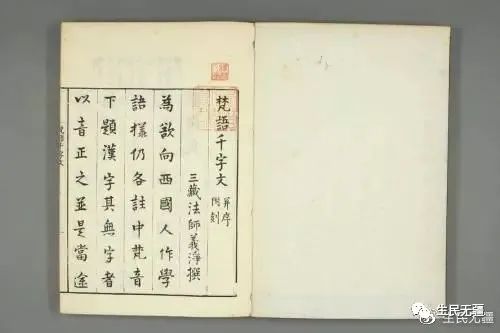 梵語千字文 并序
三藏法師義淨撰
為欲向西國人作學
語樣仍各註中梵音
下題漢字其無字者
以音正之並是當途
生民无疆
生民无疆